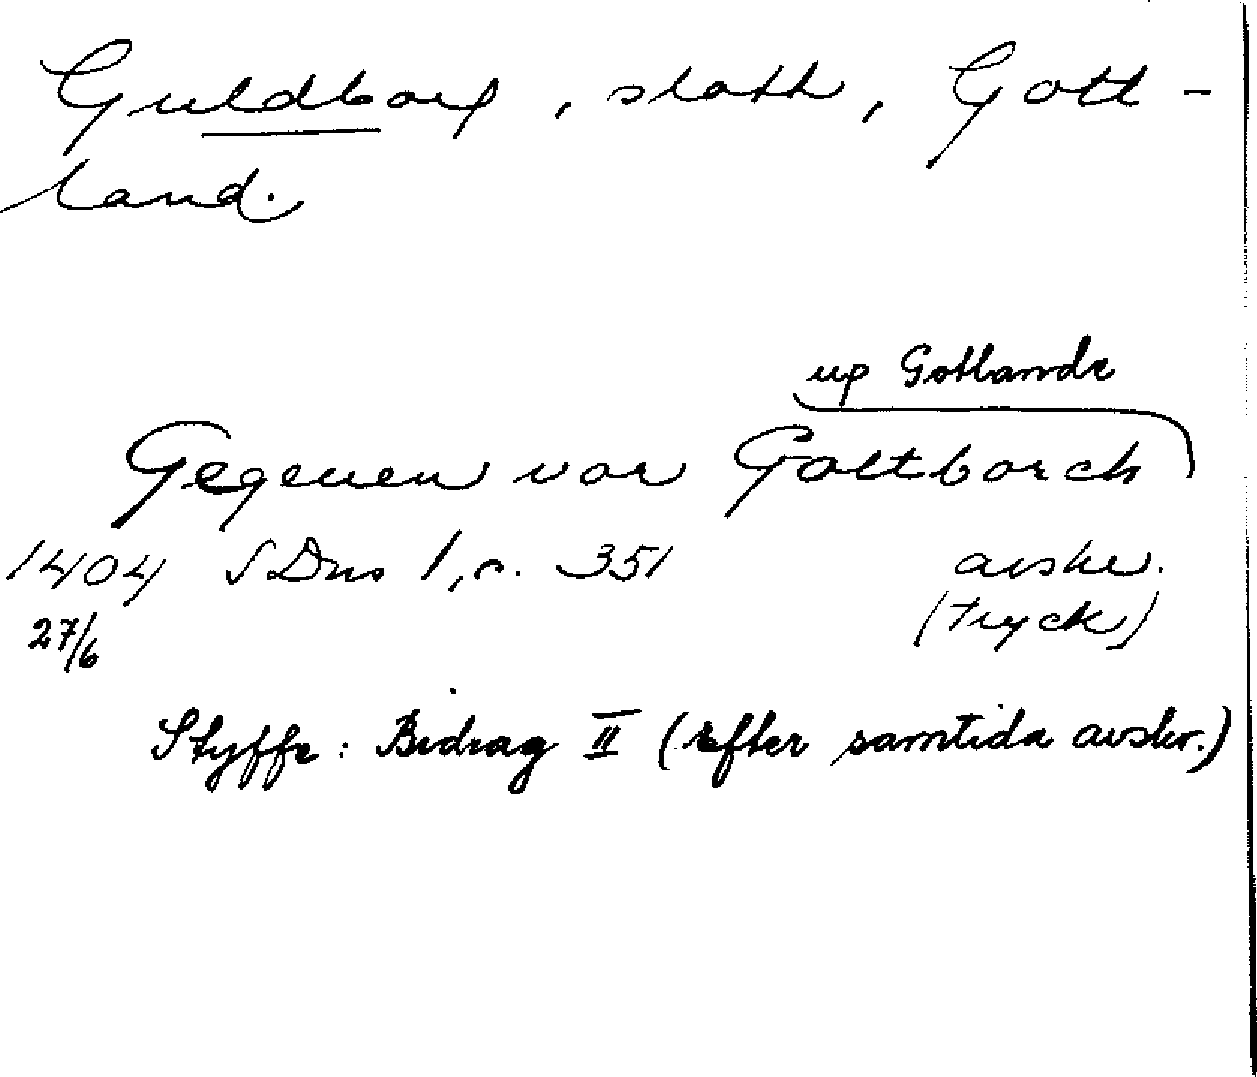 Guldborg, slott, Gott-
land.
up Gotlande
Gegeuen vor Goltborch
1404 SDns 1, s. 351 avskr.
27/6 (tryck)
Styffe: Bidrag II (efter samtida avskr.)